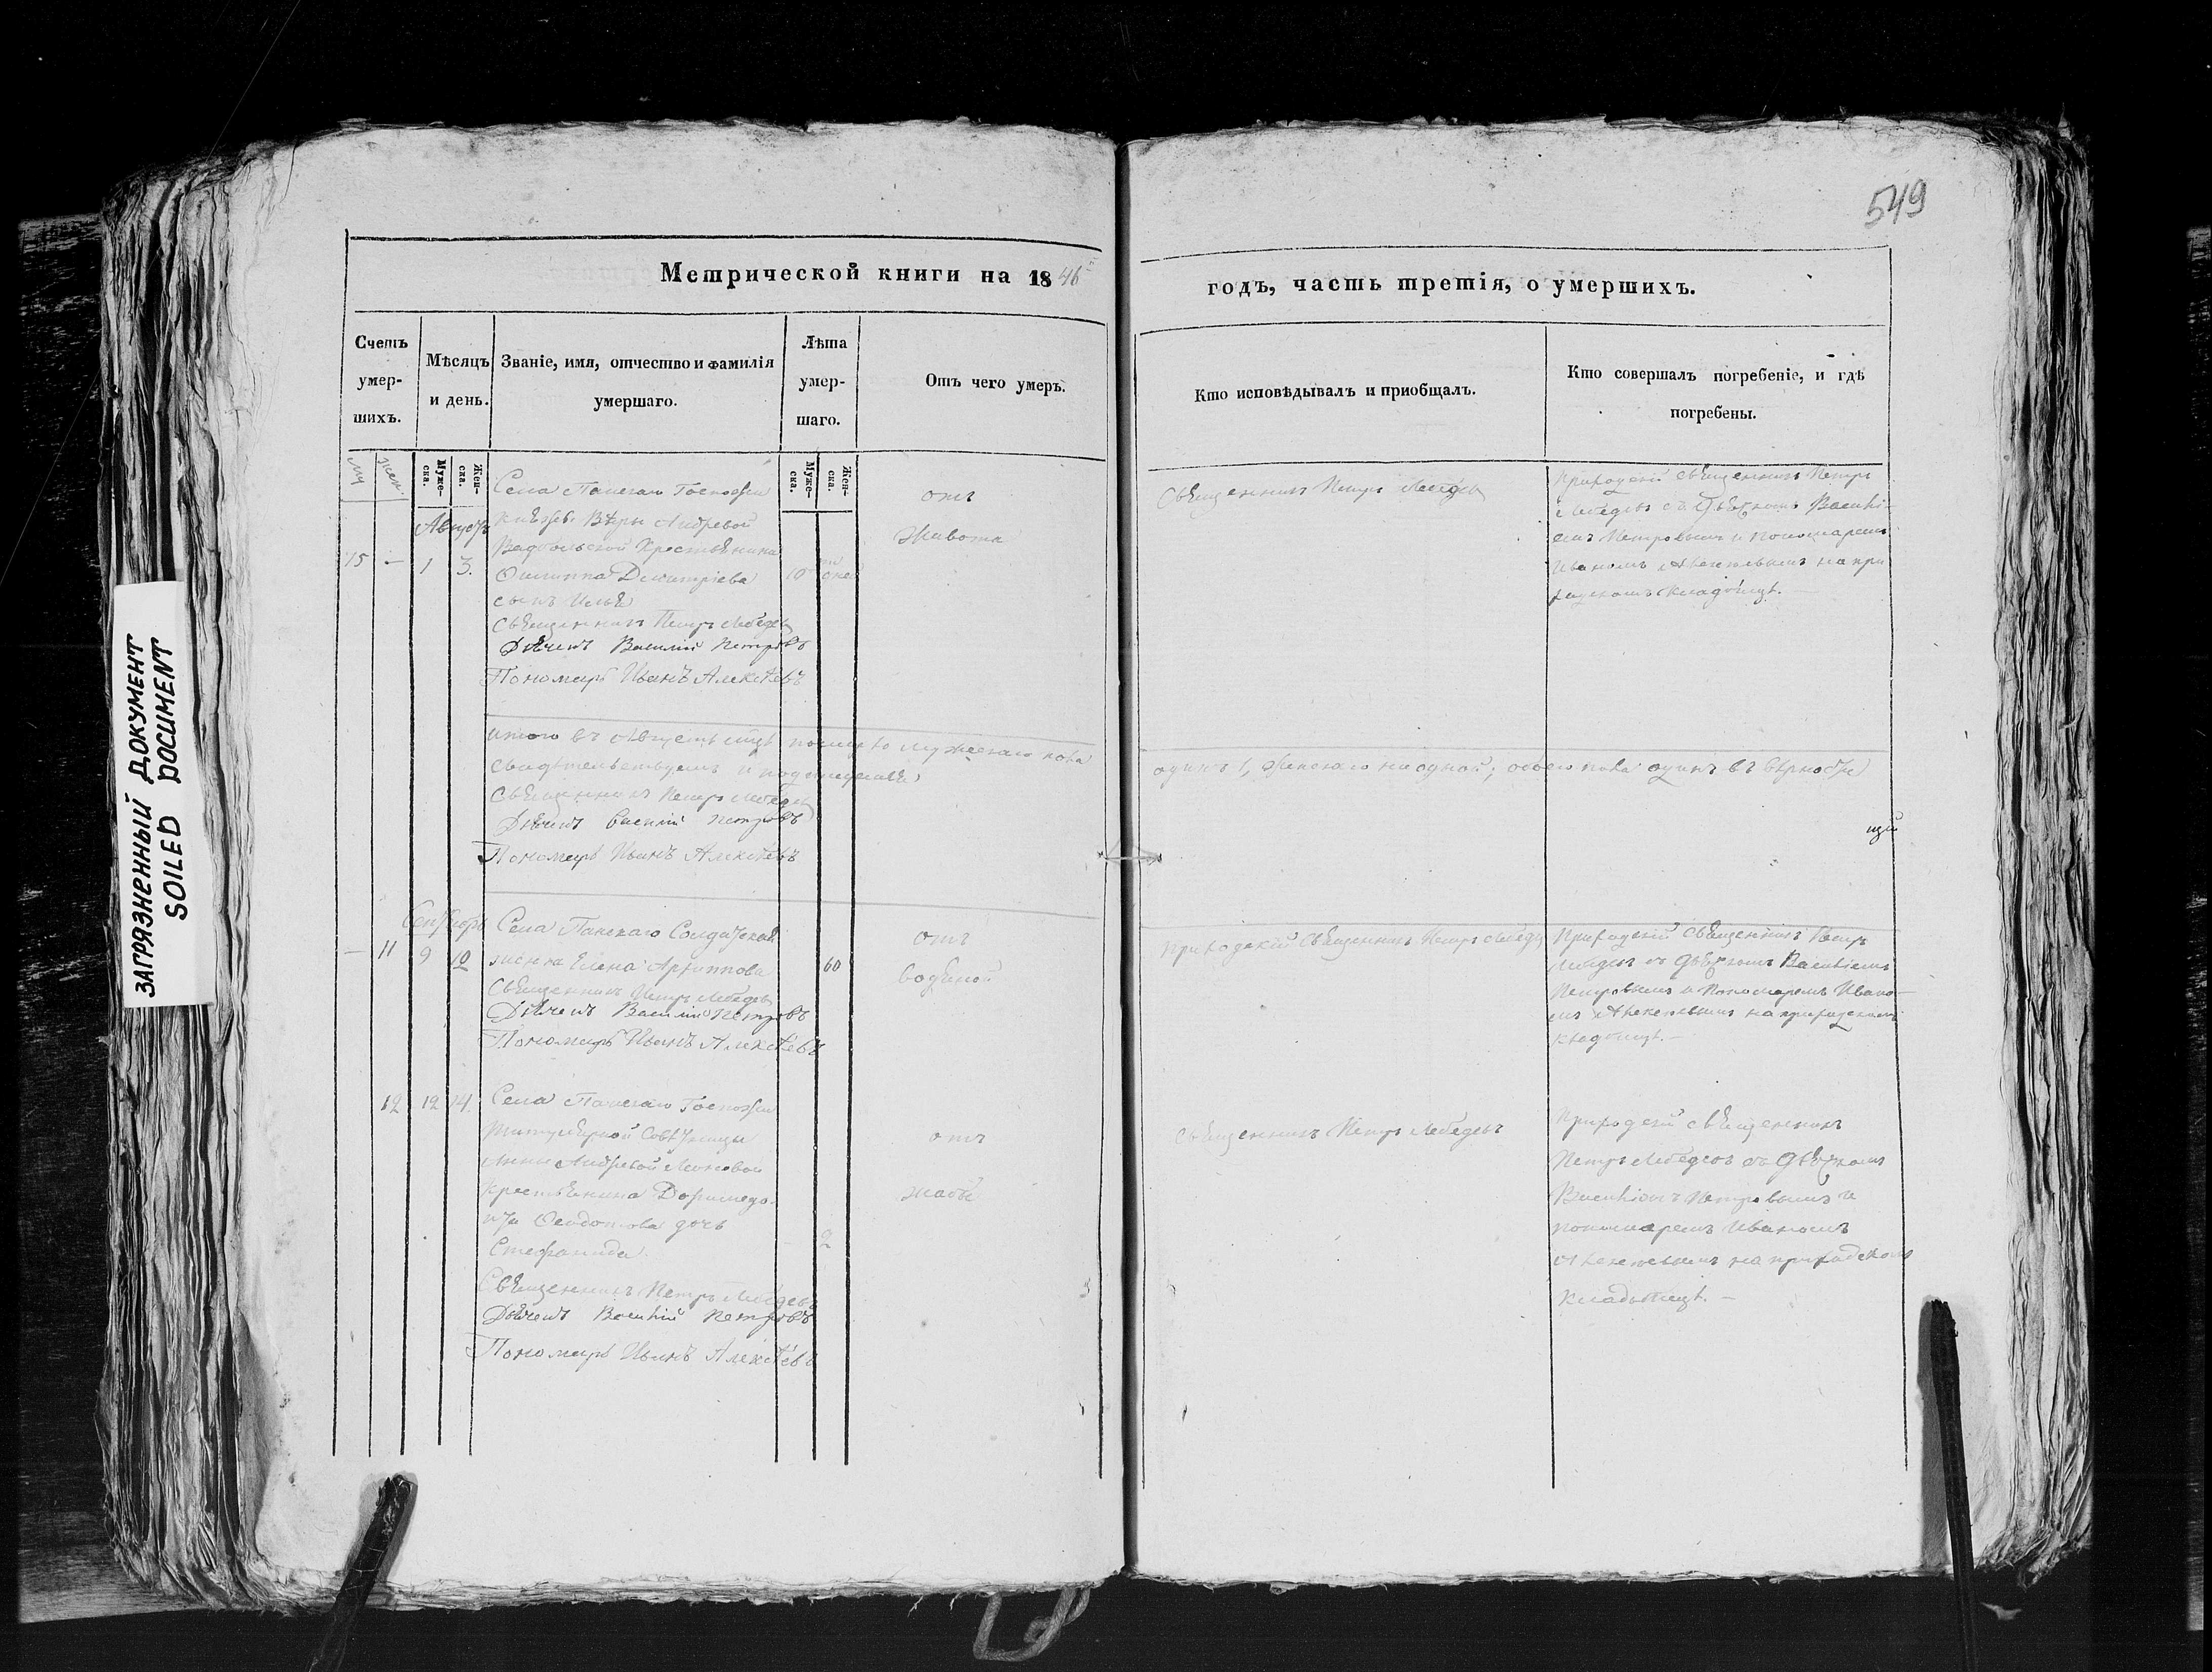 549
ЗАГРЯЗНЕННЫЙ ДОКУМЕНТ
SOILED DOCUMENT
Метрической книги на 1846
годъ, часть третія, о умершихъ.
Счетъ умер-
шихъ.
Мѣсяцъ
и день.
Званіе, имя, отчество и фамилія
умершаго.
Лѣта
умер-
шаго.
Отъ чего умеръ.
Кто исповѣдывалъ и приобщалъ.
Кто совершалъ погребеніе, и гдѣ
погребены.
Муже-
ска.
Жен-
ска.
Муже-
ска.
Жен-
ска.
Августъ
15 — 1 3.
Села Панскаго Госпожи
Вѣры Андревой
Крестьянина
Филиппа Димитріева
сынъ Илья
Священникъ Петръ Лебедевъ
Дьячекъ Василій Петровъ
Пономарь Иванъ Алексѣевъ
10
отъ
живота
Священникъ Петръ Лебедевъ
Приходскій священникъ Петръ
Лебедевъ съ Дьячкомъ Василі-
емъ Петровымъ и пономаремъ
Иваномъ Алексѣевымъ на при
ходскомъ кладбищѣ. —
Итого въ Августѣ мужескаго пола
одинъ 1, женскаго ни одной; обоего пола одинъ въ вѣрности
свидѣтельствуемъ и подписуемся
Священникъ Петръ Лебедевъ
Дьячекъ Василій Петровъ
Пономарь Иванъ Алексѣевъ
Сентябрь
— 11 9 10
Села Панскаго Солдатская
жонка Елена Архиппова
Священникъ Петръ Лебедевъ
Дьячекъ Василій Петровъ
Пономарь Иванъ Алексѣевъ
60
отъ
водяной
Приходскій священникъ Петръ Лебедевъ
Приходскій священникъ Петръ
Лебедевъ съ дьячкомъ Василіемъ
Петровымъ и Пономаремъ Ивано-
мъ Алексѣевымъ на приходскомъ
кладбищѣ. —
12 12 14.
Села Панскаго Госпожи
Титулярной Совѣтницы
Анны Андревой
Крестьянина Доримедо-
нта Ѳеодотова дочь
Стефанида.
Священникъ Петръ Лебедевъ
Дьячекъ Василій Петровъ
Пономарь Иванъ Алексѣевъ
2
отъ
жабы
Священникъ Петръ Лебедевъ
Приходскій священникъ
Петръ Лебедевъ съ дьячкомъ
Василіемъ Петровымъ и
пономаремъ Иваномъ
Алексѣевымъ на приходскомъ
кладбищѣ. —